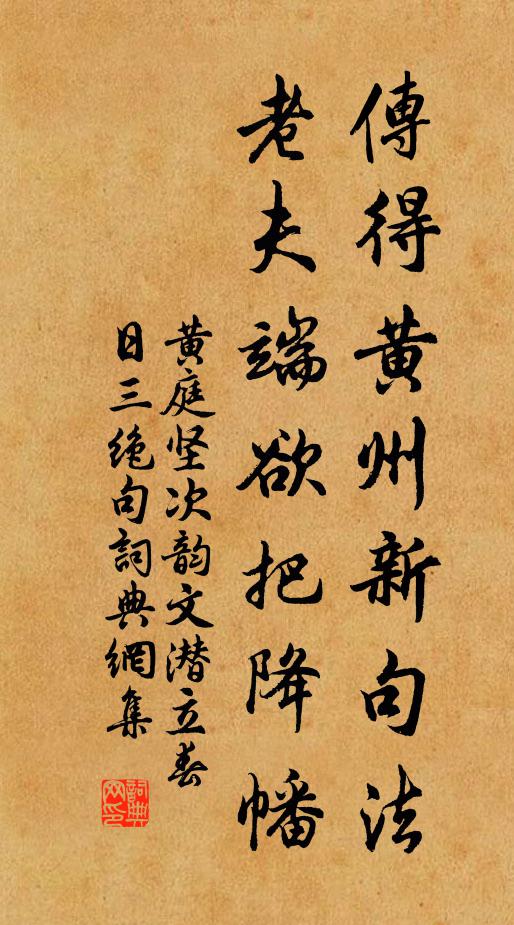 傳得黄州新句法
老夫端欲把降幡
黄庭坚次韵文潜立春
日三绝句詞典網集
詞典网印